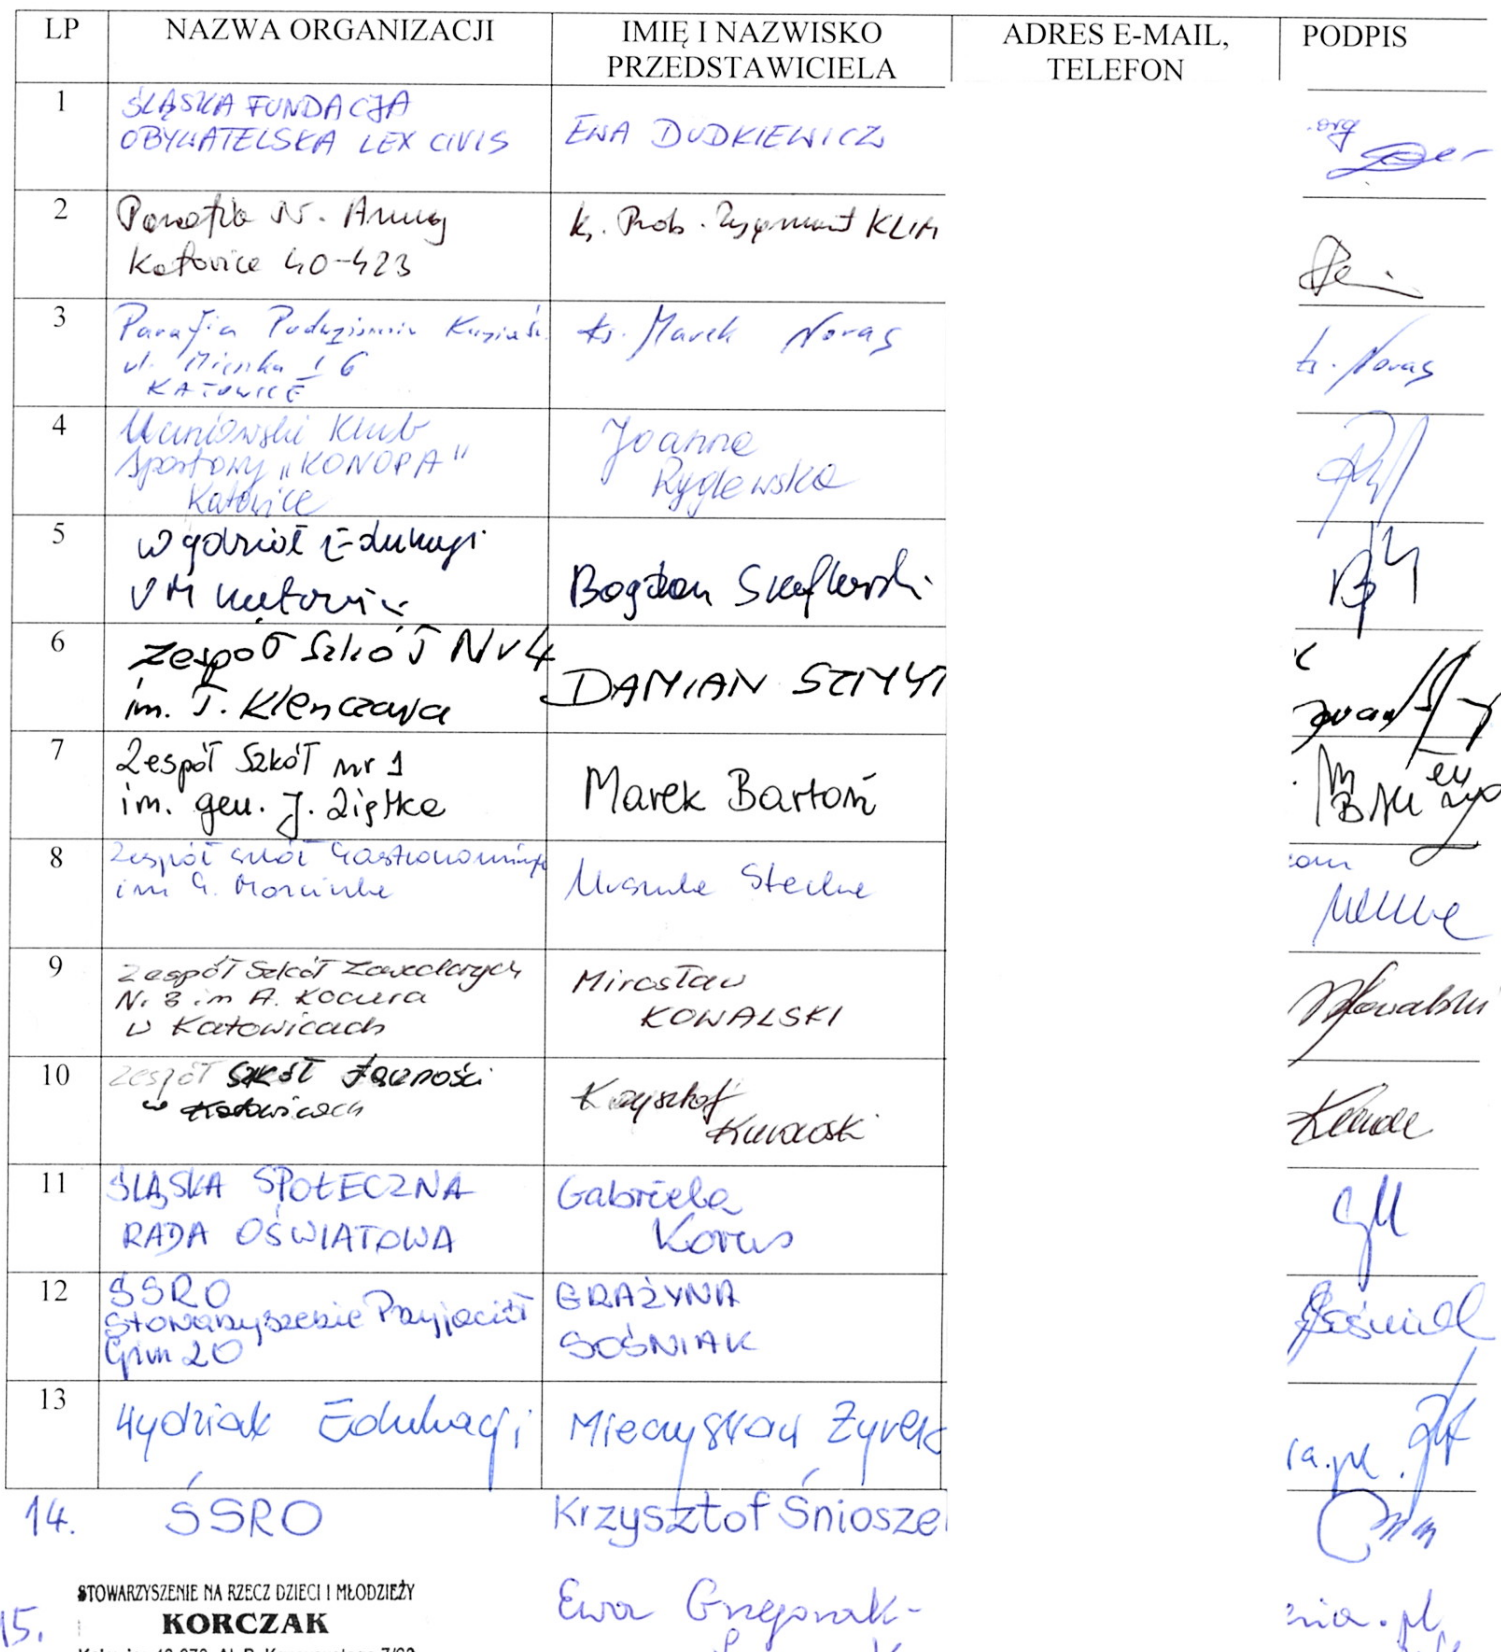 LP NAZWA ORGANIZACJI IMIĘ I NAZWISKO PRZEDSTAWICIELA ADRES E-MAIL, TELEFON PODPIS
1
ŚLĄSKA FUNDACJA
OBYWATELSKA LEX CIVIS
EWA DUDKIEWICZ
.org
2
Parafia Św. Anny
Katowice 40-423
ks. Prob. Zygmunt KLIM
3
Parafia
KATOWICE
ks. Marek Noras
ks. Noras
4
Klub
Sportowy „KONOPA"
Katowice
Joanna
Ryglewska
5
Wydział Edukacji
UM Katowice
Bogdan
6
Zespół Szkół Nr 4
im.
DAMIAN
7
Zespół Szkół nr 1
im. gen. J. Ziętka
Marek Bartoń
8
Zespół Szkół
im G. Morcinka
Urszula
9
Zespół Szkół Zawodowych
Nr 3 im A. Kocura
w Katowicach
Mirosław
KOWALSKI
Kowalski
10
Zespół Szkół Łączności
w Katowicach
Krzysztof
11
ŚLĄSKA SPOŁECZNA
RADA OŚWIATOWA
Gabriela
Korus
12
ŚSRO
Stowarzyszenie Przyjaciół
Gim 20
GRAŻYNA
SOŚNIAK
13
Wydział Edukacji
Mieczysław Żyrek
14.
ŚSRO
Krzysztof Śnioszek
15.
STOWARZYSZENIE NA RZECZ DZIECI I MŁODZIEŻY
KORCZAK
Ewa Grzegorzak-
nia.pl